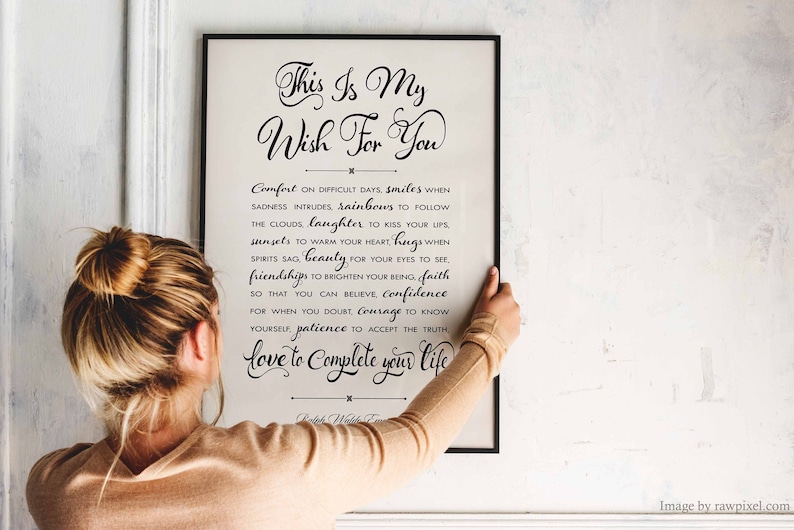 This Is My
Wish For You
Comfort ON DIFFICULT DAYS, smiles WHEN
SADNESS INTRUDES, rainbows TO FOLLOW
THE CLOUDS, laughter TO KISS YOUR LIPS,
sunsets TO WARM YOUR HEART, hugs WHEN
SPIRITS SAG, beauty FOR YOUR EYES TO SEE,
friendships TO BRIGHTEN YOUR BEING, faith
SO THAT YOU CAN BELIEVE, Confidence
FOR WHEN YOU DOUBT, Courage TO KNOW
YOURSELF, patience TO ACCEPT THE TRUTH,
love to Complete your life
Ralph Waldo
Image by rawpixel.com